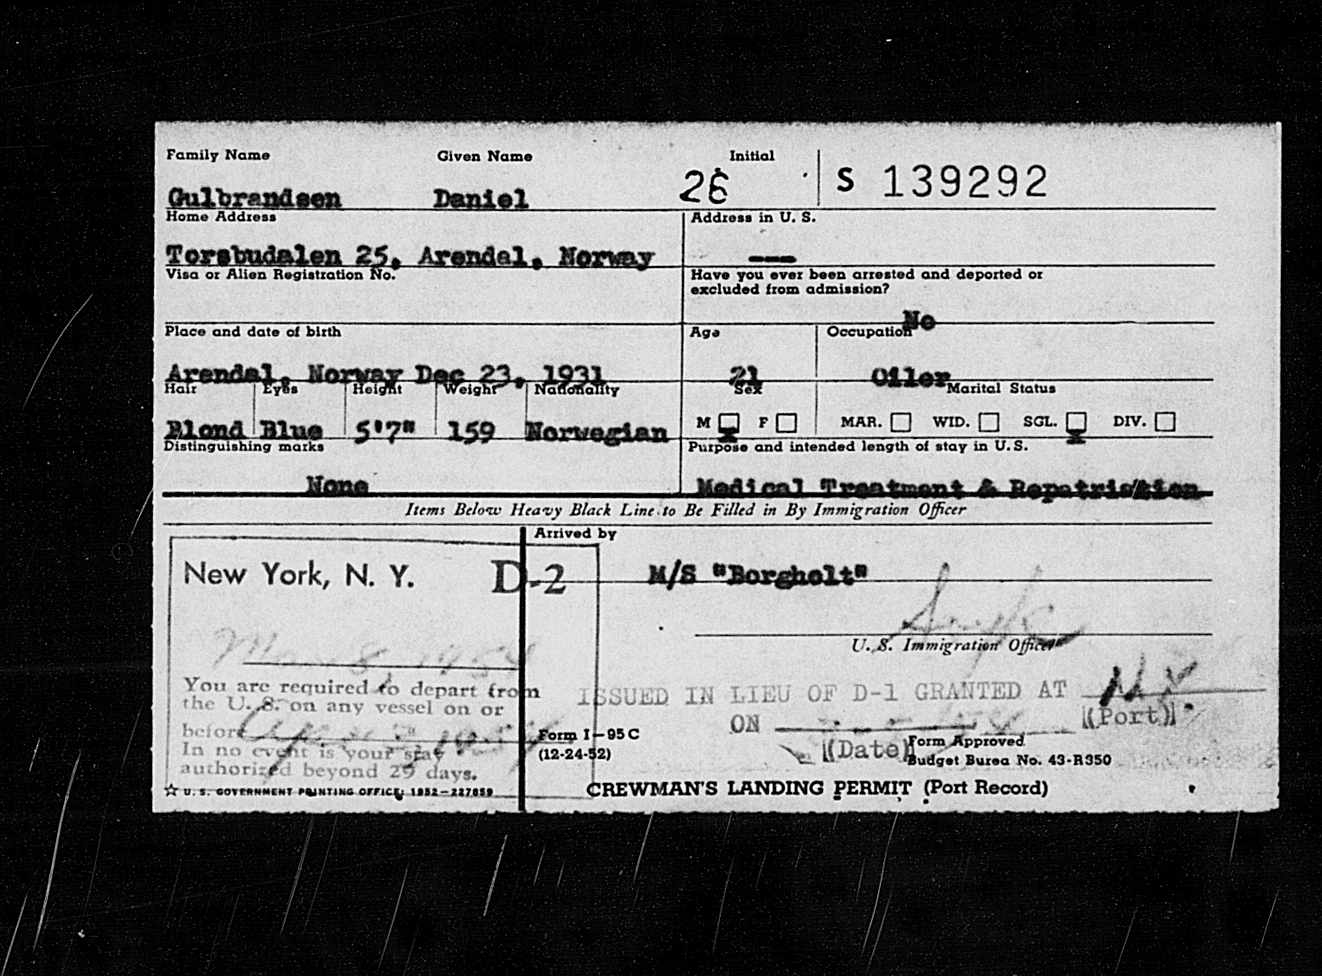 Family Name Given Name Initial
Gulbrandsen Daniel 26 S 139292
Home Address Address in U. S.
Torsbudalen 25, Arendal, Norway ---
Visa or Alien Registration No. Have you ever been arrested and deported or
excluded from admission?
No
Place and date of birth Age Occupation
Arendal, Norway Dec 23, 1931 21 Oiler
Hair Eyes Height Weight Nationality Sex Marital Status
Blond Blue 5'7" 159 Norwegian M F MAR. WID. SGL. DIV.
Distinguishing marks Purpose and intended length of stay in U. S.
None Medical Treatment & Repatriation
Items Below Heavy Black Line to Be Filled in By Immigration Officer
Arrived by
New York, N. Y. D-2 M/S "Borgholt"
U. S. Immigration Officer
Mar 8, 1954
You are required to depart from
the U. S. on any vessel on or
before
In no event is your stay
authorized beyond 29 days.
ISSUED IN LIEU OF D-1 GRANTED AT N Y
ON (Port)
(Date)
Form I-95 C
(12-24-52)
Form Approved
Budget Burea No. 43-R350
☆ U. S. GOVERNMENT PRINTING OFFICE: 1952-227859
CREWMAN'S LANDING PERMIT (Port Record)